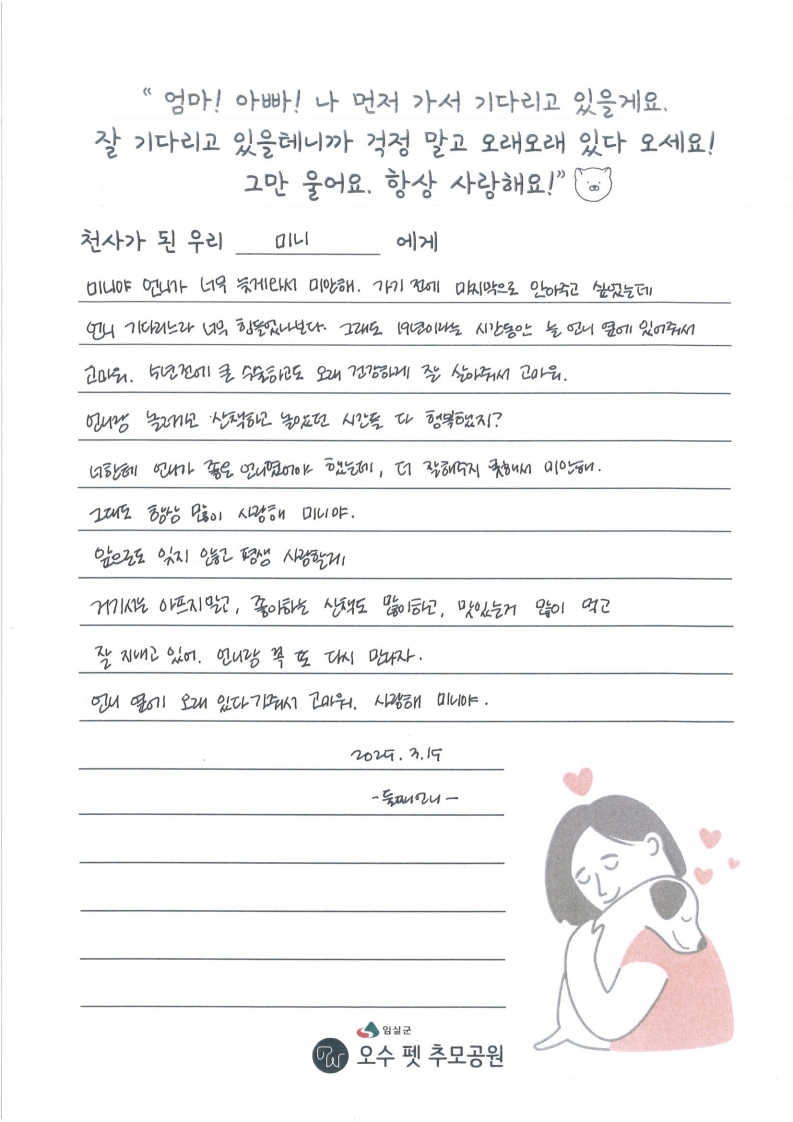 “ 엄마! 아빠! 나 먼저 가서 기다리고 있을게요.
잘 기다리고 있을테니까 걱정 말고 오래오래 있다 오세요!
그만 울어요. 항상 사랑해요!”
천사가 된 우리 미니 에게
미니야 언니가 너무 늦게와서 미안해. 가기 전에 마지막으로 안아주고 싶었는데
언니 기다리느라 너무 힘들었나보다. 그래도 19년이라는 시간동안 늘 언니 옆에 있어줘서
고마워. 5년전에 큰 수술하고도 오래 건강하게 잘 살아줘서 고마워.
언니랑 놀러가고 산책하고 놀았던 시간들 다 행복했지?
너한테 언니가 좋은 언니였어야 했는데, 더 잘해주지 못해서 미안해.
그래도 항상 많이 사랑해 미니야.
앞으로도 잊지 않고 평생 사랑할게
거기서는 아프지말고, 좋아하는 산책도 많이하고, 맛있는거 많이 먹고
잘 지내고 있어. 언니랑 꼭 또 다시 만나자.
언니 옆에 오래 있다가줘서 고마워. 사랑해 미니야.
2025. 3. 15
-둘째언니-
임실군
오수 펫 추모공원